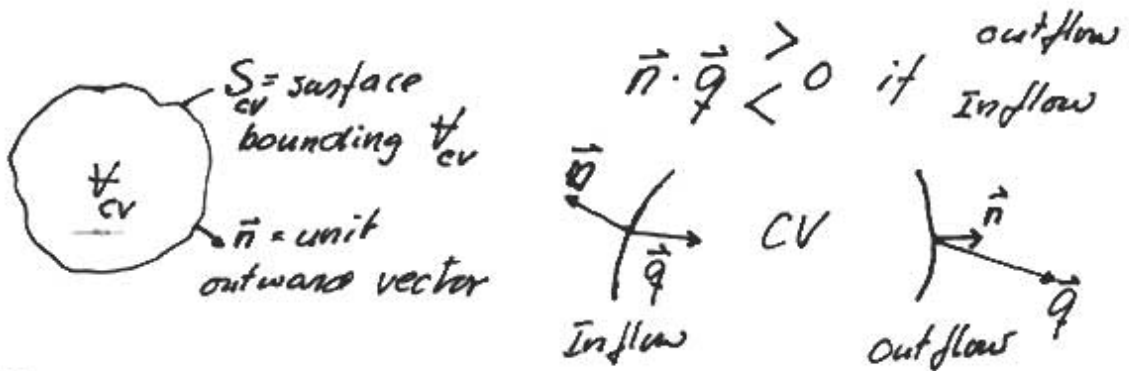 S_cv = surface
bounding V_cv
V_cv
n⃗ = unit
outward vector
n⃗ · q⃗ > 0 if outflow
< Inflow
n⃗
q⃗
Inflow
CV
n⃗
q⃗
outflow